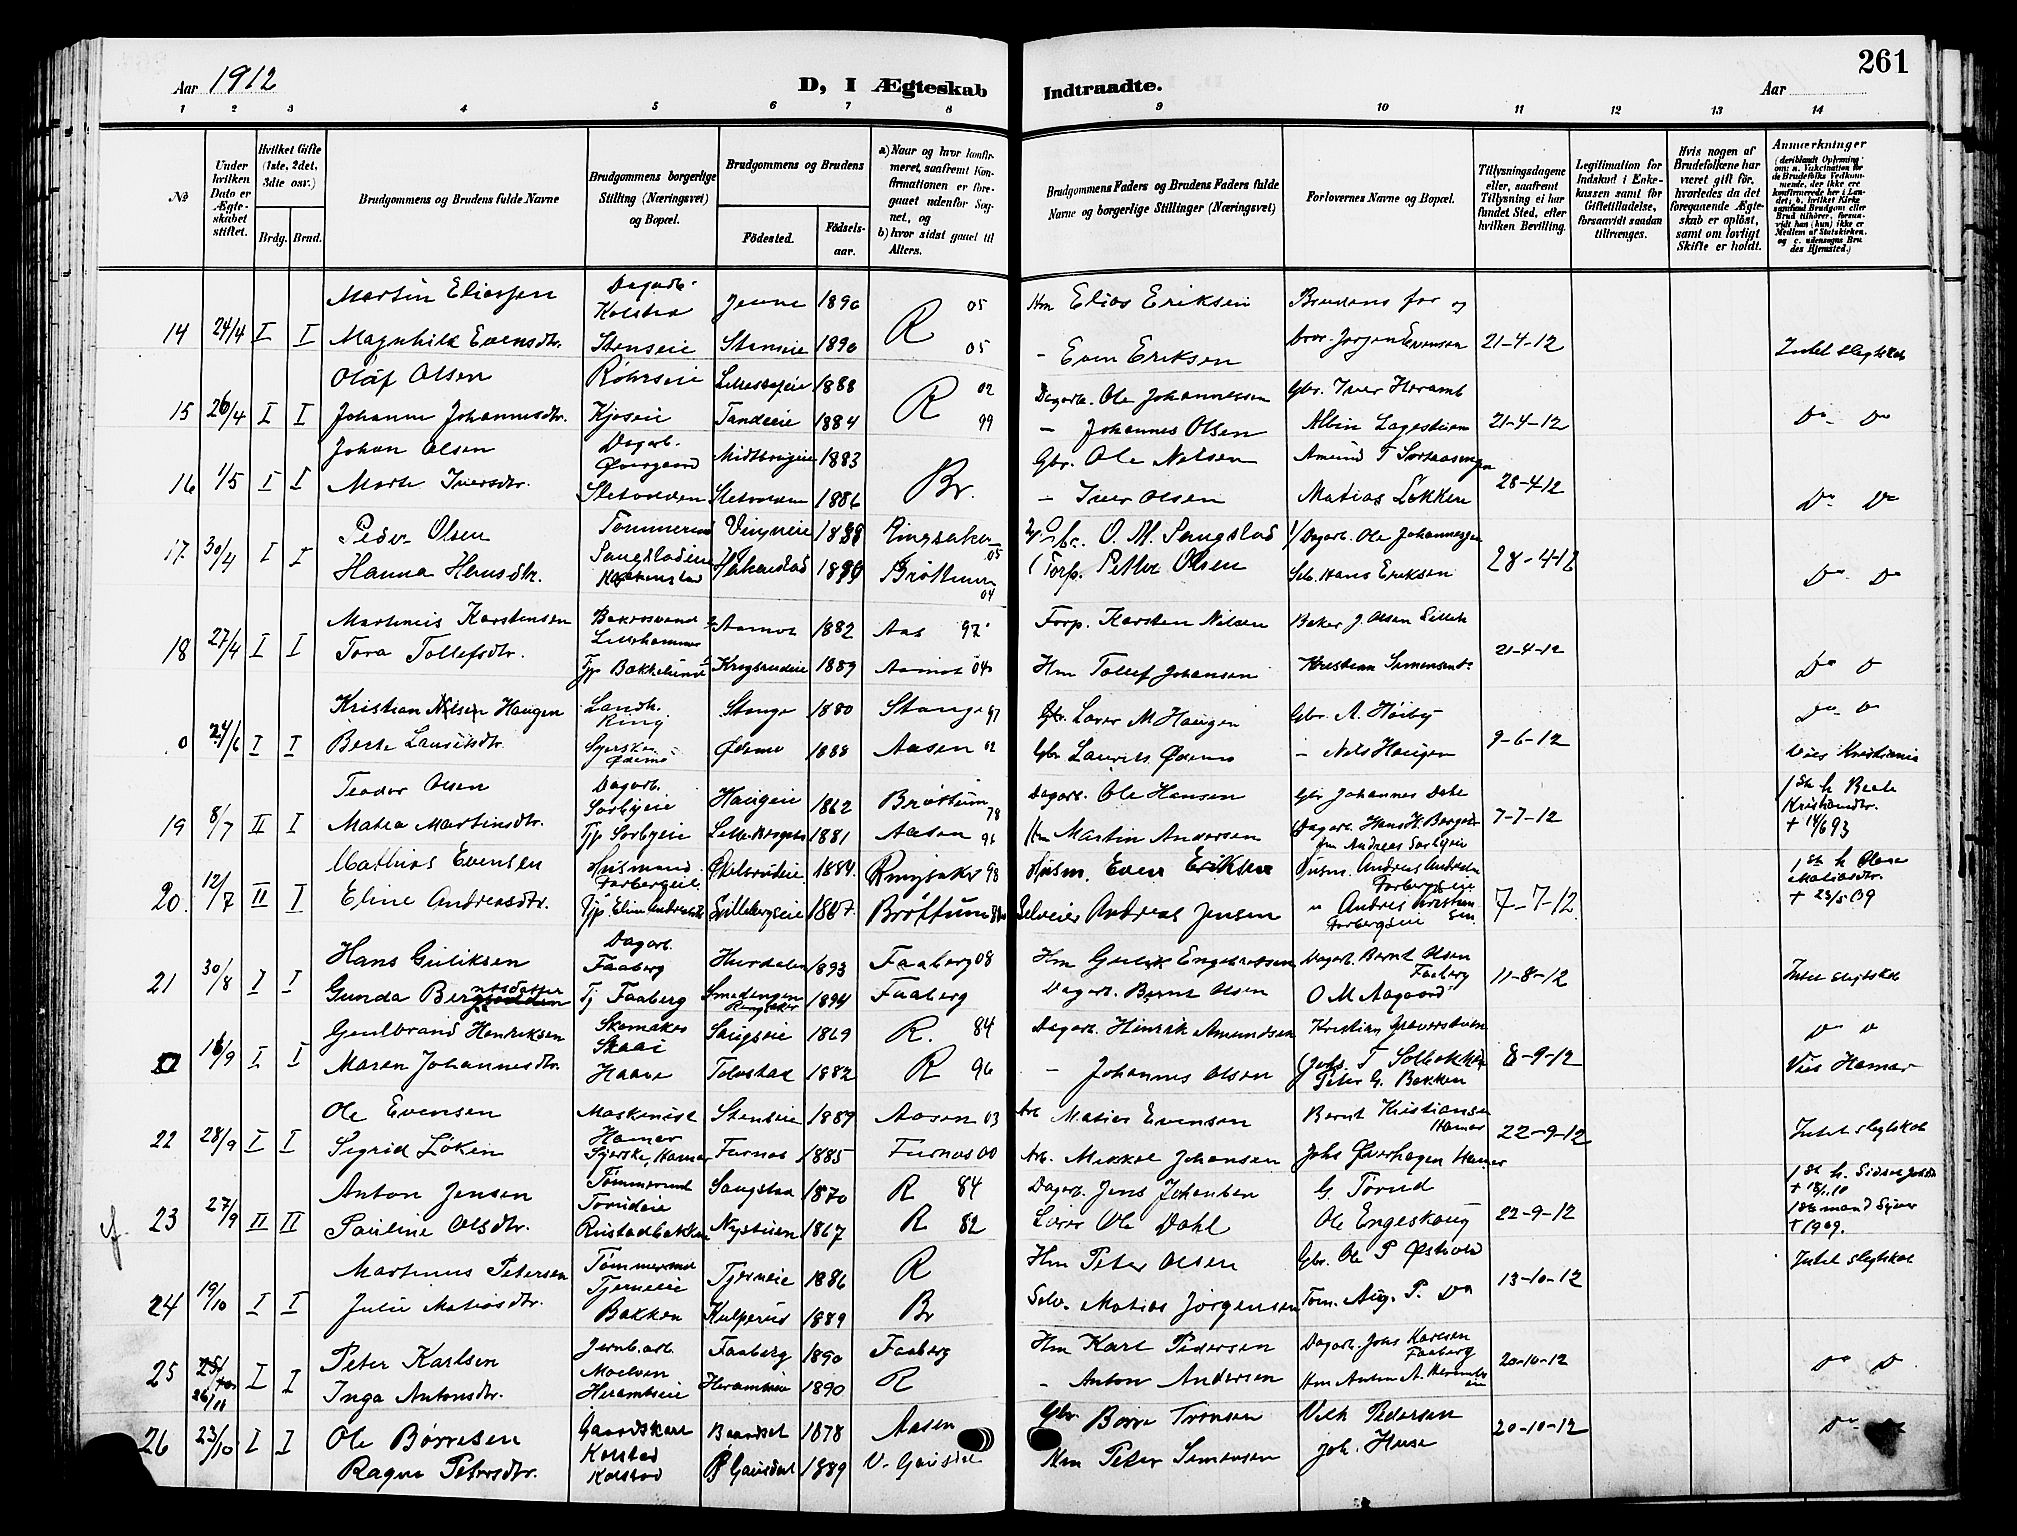 261
Aar 1912
D, I Ægteskab Indtraadte.
Aar
1 2 3 4 5 6 7 8 9 10 11 12 13 14
No
Under hvilken Dato er Ægteskabet stiftet.
Hvilket Gifte (1ste, 2det, 3die osv.)
Brdg. Brud.
Brudgommens og Brudens fulde Navne
Brudgommens borgerlige Stilling (Næringsvei) og Bopæl.
Brudgommens og Brudens
Fødested.
Fødselsaar.
a) Naar og hvor konfirmeret, saafremt Konfirmationen er foregaaet udenfor Sognet, og
b) hvor sidst gaaet til Alters.
Brudgommens Faders og Brudens Faders fulde Navne og borgerlige Stillinger (Næringsvei)
Forlovernes Navne og Bopæl.
Tillysningsdagene eller, saafremt Tillysning ei har fundet Sted, efter hvilken Bevilling.
Legitimation for Indskud i Enkekassen samt for Giftetilladelse, forsaavidt saadan tiltrænges.
Hvis nogen af Brudefolkene har været gift før, hvorledes da det foregaaende Ægteskab er opløst, samt om lovligt Skifte er holdt.
Anmærkninger
(deriblandt Oplysning om: a. Vakcination for de Brudefolks Vedkommende, der ikke ere konfirmerede her i Landet; b. hvilket Kirkesamfund Brudgom eller Brud tilhører, forsaavidt han (hun) ikke er Medlem af Statskirken, og c. udensogns Brudes Hjemsted.)
Martin Eliassen Dagarb. Kolstad 1890 05 Hm Elias Eriksen Brudens far og
14 24/4 I I Magnhild Evensdtr. Stenseie Stenseie 1890 R 05 - Even Eriksen bror Jørgen Evensen 21-4-12 Intet slegtskab
Olaf Olsen Røhrseie 1888 02 Dagarb. Ole Johannessen Gbr. Iver Heramb
15 26/4 I I Johanne Johannesdtr. Kjoseie 1884 R 99 - Johannes Olsen 21-4-12 Do Do
Johan Olsen Dagarb. Øvergaard 1883 Gbr. Ole Nilsen
16 1/5 I I Marte Iversdtr. Sletvolden Sletvolden 1886 Br. - Iver Olsen Matias Løkken 28-4-12 Do Do
Peder Olsen Tømmermd Ringsaker 05 O. M. Saugstad Dagarb. Ole Johannessen
17. 30/4 I I Hanna Hansdtr. Brøttum 04 Petter Olsen Hans Eriksen 28-4-12 Do Do
Martinius Karstensen Lillehammer Aamot 1882 Aas 97 Forp. Karsten Nilsen Baker J. Olsen
18 27/4 I I Tora Tollefsdtr. Tjp 1889 Aamot 04 Hm Tollef Johansen Kristian Simensen 21-4-12 Do D
Kristian Nilsen Haugen Landh. Ring Stange 1880 Stange 97 Lars M Haugen Gbr. A. Høiby Do D
0 24/6 I I Berte Lauritsdtr. Syerske Ødemo Ødemo 1888 Aasen 02 Gbr Laurits Ødemo - Nels Haugen 9-6-12 Viet Kristiania
Teodor Olsen Dagarb. Sorbyeie Haugeie 1862 Brøttum 78 Dagarb. Ole Hansen Gbr Johannes Dahl 1ste h Beate Kristiansdtr.
19 8/7 II I Matea Martinsdtr. Tjp Sorbyeie 1881 Aasen 96 Hm Martin Andersen Andreas Sorbyeie 7-7-12 + 14/6 93
Mathias Evensen Husmand Farbergeie 1884. Ringsaker 98 Husm. Even Eriksen Husm. Andreas Andersen Farbergseie 1ste h Olene Matiasdtr.
20. 12/7 II I Eline Andreasdtr. 1867. Brøttum Selveier Andreas Jensen Farbergseie 7-7-12.
Hans Guliksen Dagarb. Faaberg Hurdalen 1893 Faaberg 08 Hm Gulik Engebretsen Dagarb. Bernt Olsen Faaberg
21 30/8 I I Gunda Berntsdatter Tj Faaberg Smedengen Ringsaker 1894 Faaberg Dagarb. Bernt Olsen O M Aagaard 11-8-12 Intet slegtskab
Gudbrand Henriksen Skomaker Skaai Saugseie 1869 R. 84 Dagarb. Hinrik Amundsen Do D
16/9 I I Maren Johannesdtr. Haave Tolvstad 1882 R 96 - Johannes Olsen Johs. T Solbakken Peter G. Bakken 8-9-12 Viet Hamar
Ole Evensen Maskinist Hamar Stenseie 1889 Aasen 03 Arb Matias Evensen Bernt Kristiansen Hamar
22 28/9 I I Sigrid Løken Syerske, Hamar Furnes 1885 Furnes 00 Arb. Mikkel Johansen Johs Øverhagen Hamar 22-9-12 Intet slegtskab
Anton Jensen Tømmermd Torudeie Saugstad 1870 R 84 Dagarb. Jens Johansen G. Torud
23 27/9 II II Pauline Olsdtr. Rustadbakken Nystuen 1867 R 82 Lærer Ole Dahl Ole Engeskaug 22-9-12 + 1909.
Martinus Petersen Tømmermd Tjerneie Tjerneie 1886 R Hm Peter Olsen Gbr. Ole P Østvold Intet slegtskab
24 19/10 I I Julie Matiasdtr. Bakken Kulperud 1889 Br Selv. Matias Jørgensen Tom. Aug. P. Do 13-10-12
Peter Karlsen Jernb.arb. Moelven Faaberg 1890 Faaberg Hm Karl Pedersen Dagarb. Johs Karlsen Faaberg
25 26/11 I I Inga Antonsdtr. Herambseie Herambseie 1890 R - Anton Andersen Hm Anton A. Herambseie 20-10-12 Do D
Ole Børresen Gaardskarl Kolstad Baardset 1878 Aasen Gbr. Børre Tronsen Vilh Pedersen
26 23/10 I I Ragna Petersdtr. Kolstad Ø Gausdal 1889 V. Gausdal Hm Peter Simensen Joh. Huse 20-10-12 Do